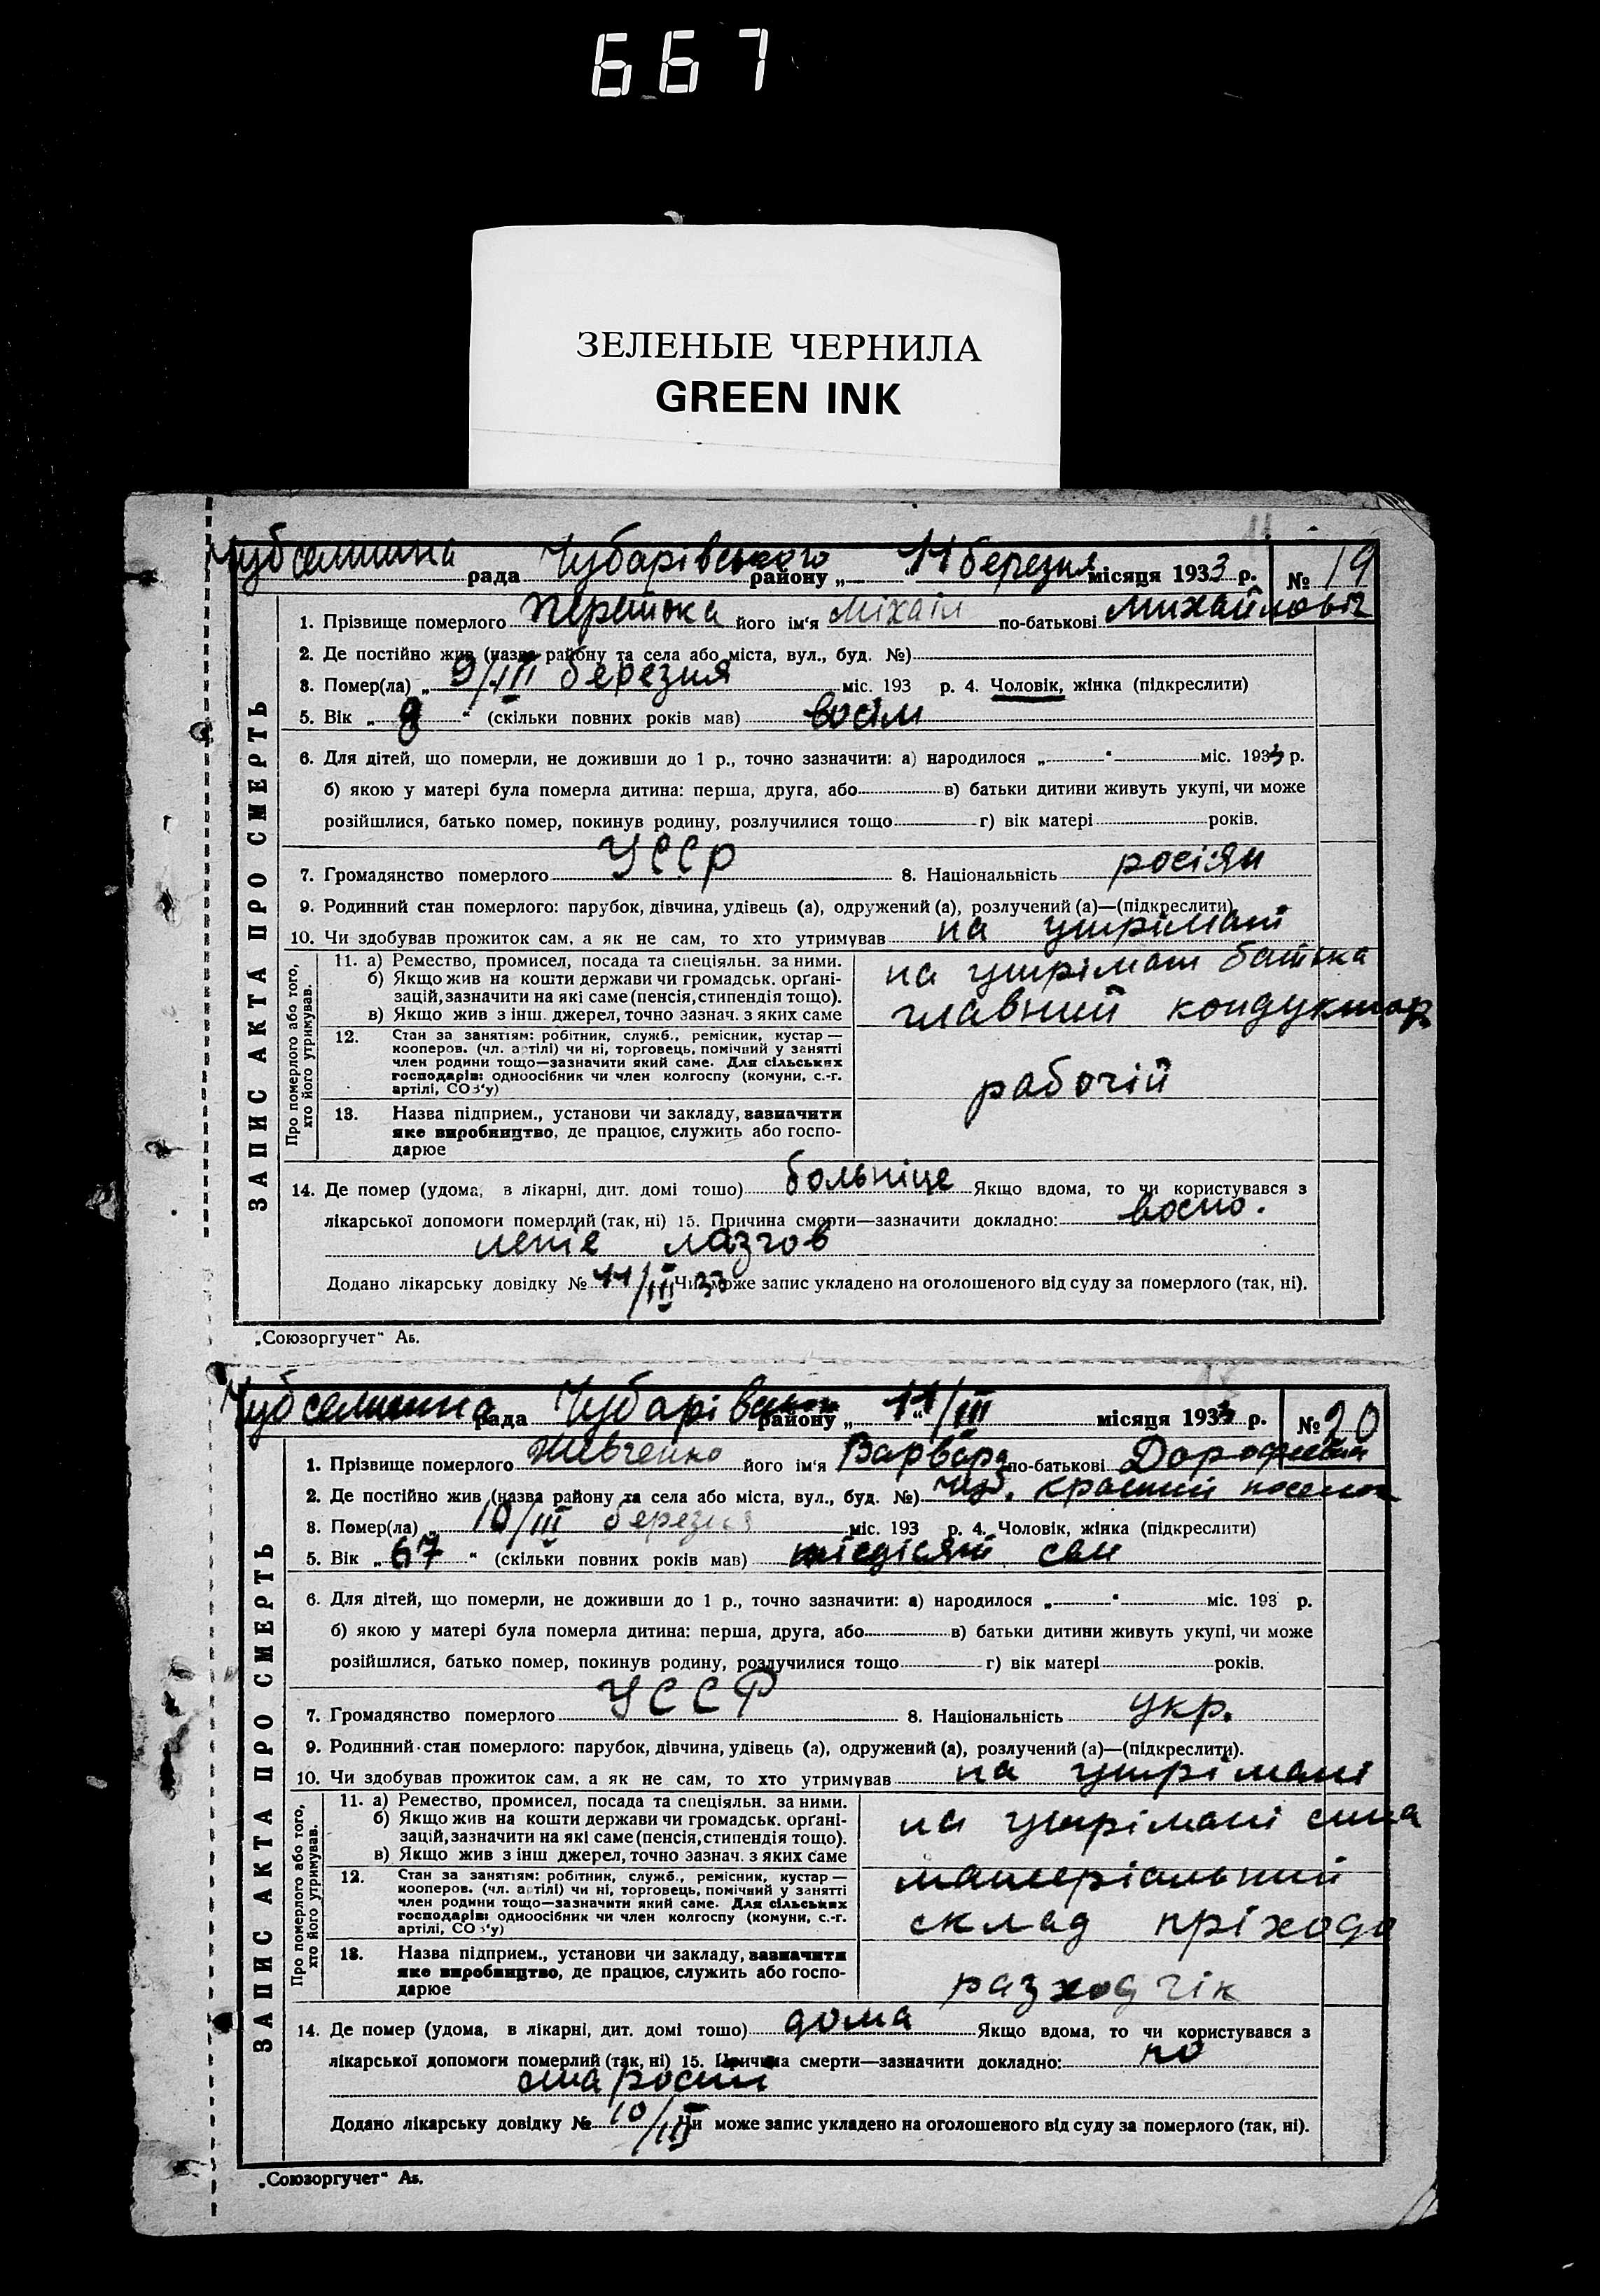 667
ЗЕЛЕНЫЕ ЧЕРНИЛА
GREEN INK
рада Чубарівського району „ “ 11 березня місяця 1933 р. № 19
ЗАПИС АКТА ПРО СМЕРТЬ
1. Прізвище померлого його ім‘я Міхаіл по-батькові Михайловіч
2. Де постійно жив (назва району та села або міста, вул., буд. №)
3. Помер(ла) „ 9/III березня міс. 193 р. 4. Чоловік, жінка (підкреслити)
5. Вік „ 8 “ (скільки повних років мав) восім
6. Для дітей, що померли, не доживши до 1 р., точно зазначити: а) народилося „ “ міс. 1933 р.
б) якою у матері була померла дитина: перша, друга, або в) батьки дитини живуть укупі, чи може
розійшлися, батько помер, покинув родину, розлучилися тощо г) вік матері років.
7. Громадянство померлого УССР 8. Національність росіян
9. Родинний стан померлого: парубок, дівчина, удівець (а), одружений (а), розлучений (а)—(підкреслити)
10. Чи здобував прожиток сам, а як не сам, то хто утримував на утрімані
Про померлого або того, хто його утримував.
11. а) Ремество, промисел, посада та спеціяльн. за ними.
б) Якщо жив на кошти держави чи громадськ. орґані-
зацій, зазначити на які саме (пенсія, стипендія тощо).
в) Якщо жив з інш. джерел, точно зазнач. з яких саме
на утрімані батька
главний кондуктар
12. Стан за занятіям: робітник, служб., ремісник, кустар —
кооперов. (чл. артілі) чи ні, торговець, помічний у занятті
член родини тощо—зазначити який саме. Для сільських
господарів: одноосібник чи член колгоспу (комуни, с.-г.
артілі, СОЗ‘у)
рабочій
13. Назва підприєм., установи чи закладу, зазначити
яке виробництво, де працює, служить або госпо-
дарює
14. Де помер (удома, в лікарні, дит. домі тошо) больніце Якщо вдома, то чи користувався з
лікарської допомоги померлий (так, ні) 15. Причина смерти—зазначити докладно: воспо.
леніе мазгов
Додано лікарську довідку № 11/III 33 Чи може запис укладено на оголошеного від суду за померлого (так, ні).
„Союзоргучет“ Аб.
рада Чубарівського району „ 11/III “ місяця 1933 р. № 20
ЗАПИС АКТА ПРО СМЕРТЬ
1. Прізвище померлого його ім‘я Варвара по-батькові
2. Де постійно жив (назва району та села або міста, вул., буд. №) Чуб. красний поселок
3. Помер(ла) „ 10/III березня міс. 193 р. 4. Чоловік, жінка (підкреслити)
5. Вік „ 67 “ (скільки повних років мав) сем
6. Для дітей, що померли, не доживши до 1 р., точно зазначити: а) народилося „ “ міс. 193 р.
б) якою у матері була померла дитина: перша, друга, або в) батьки дитини живуть укупі, чи може
розійшлися, батько помер, покинув родину, розлучилися тощо г) вік матері років.
7. Громадянство померлого УССР 8. Національність укр.
9. Родинний стан померлого: парубок, дівчина, удівець (а), одружений (а), розлучений (а)—(підкреслити).
10. Чи здобував прожиток сам, а як не сам, то хто утримував на утрімані
Про померлого або того, хто його утримував.
11. а) Ремество, промисел, посада та спеціяльн. за ними.
б) Якщо жив на кошти держави чи громадськ. орґані-
зацій, зазначити на які саме (пенсія, стипендія тощо).
в) Якщо жив з інш джерел, точно зазнач. з яких саме
на утрімані сина
12. Стан за занятіям: робітник, служб., ремісник, кустар —
кооперов. (чл. артілі) чи ні, торговець, помічний у занятті
член родини тощо—зазначити який саме. Для сільських
господарів: одноосібник чи член колгоспу (комуни, с.-г.
артілі, СОЗ‘у)
матеріальний
склад пріхода
13. Назва підприєм., установи чи закладу, зазначити
яке виробництво, де працює, служить або госпо-
дарює
разходчік
14. Де помер (удома, в лікарні, дит. домі тошо) дома Якщо вдома, то чи користувався з
лікарської допомоги померлий (так, ні) 15. Причина смерти—зазначити докладно: по
старости
Додано лікарську довідку № 10/III Чи може запис укладено на оголошеного від суду за померлого (так, ні).
„Союзоргучет“ Аб.